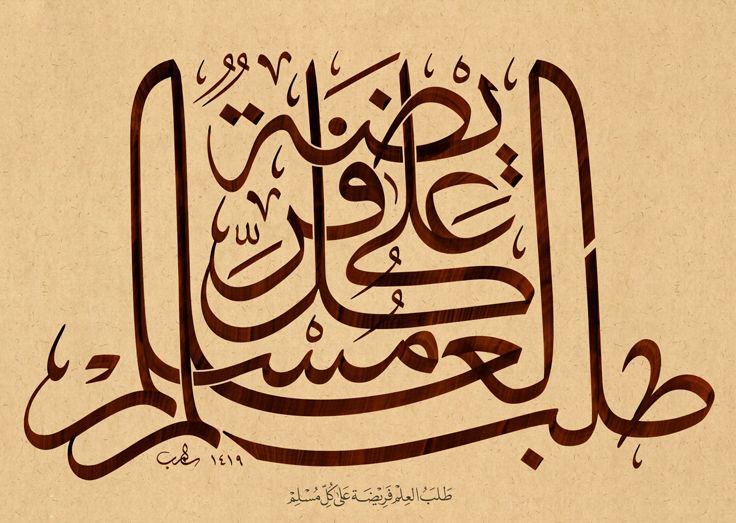 طلب العلم فريضةٌ على كلِّ مُسْلِم
١٤١٩
طَلَبُ العِلْم فَرِيْضَة عَلى كُلِّ مُسْلِمْ